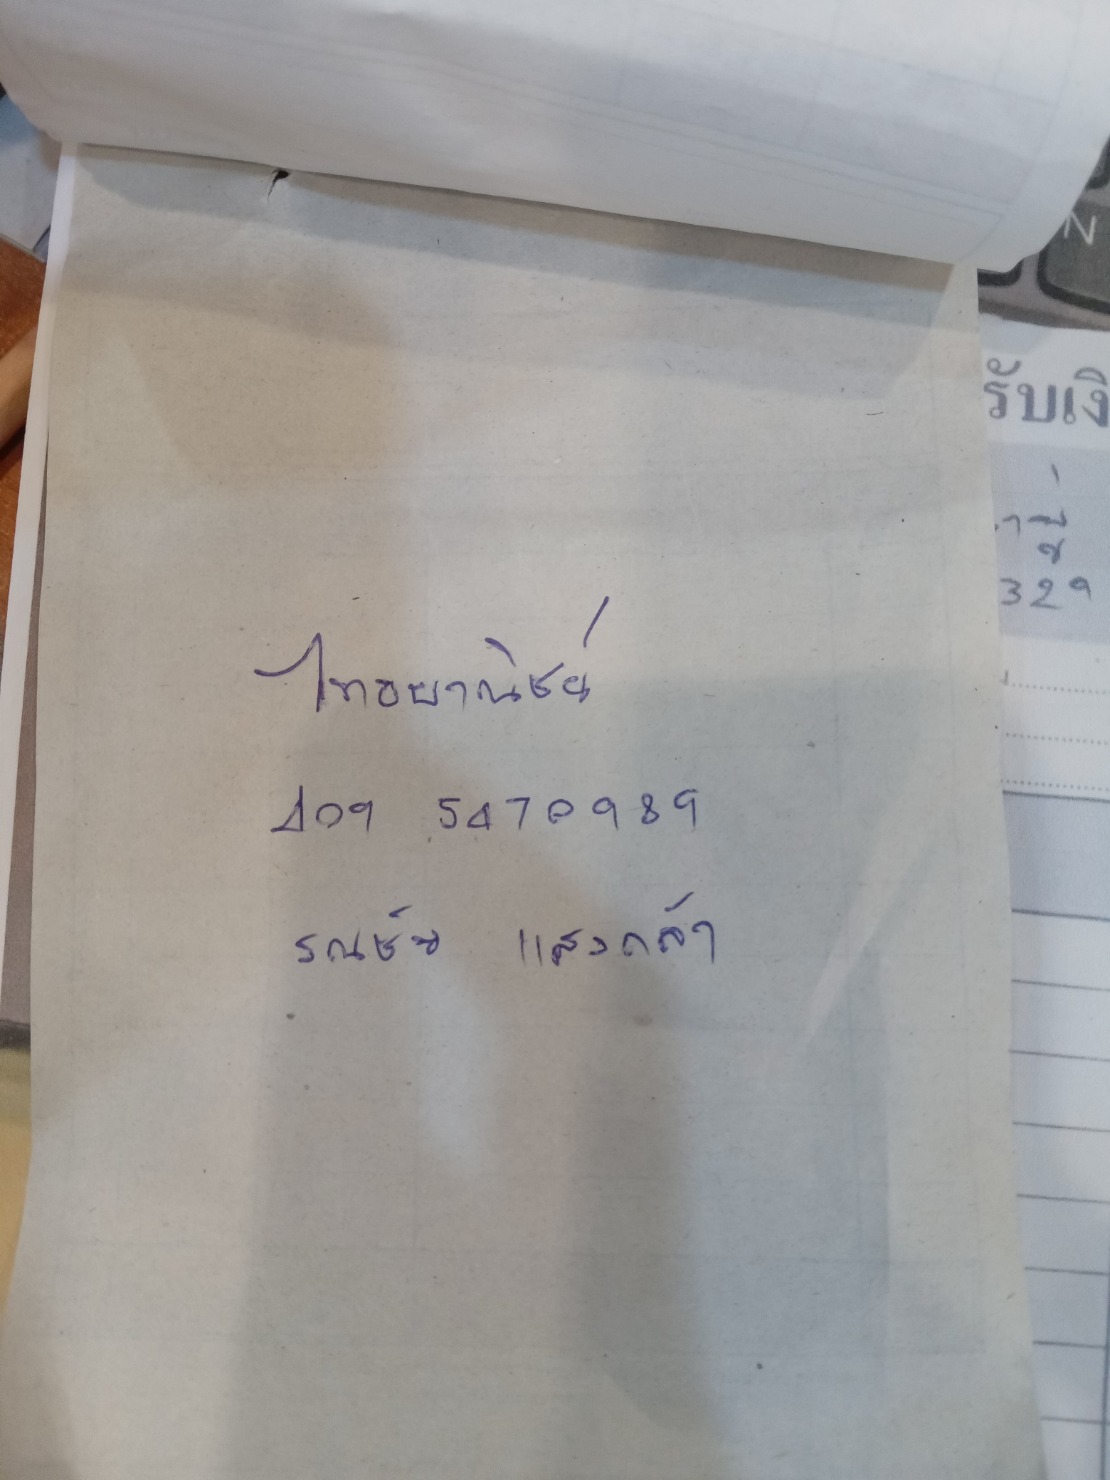 ไทยพาณิชย์
409 5470989
รณชัย แสงกล้า
รับเงิ
329
N